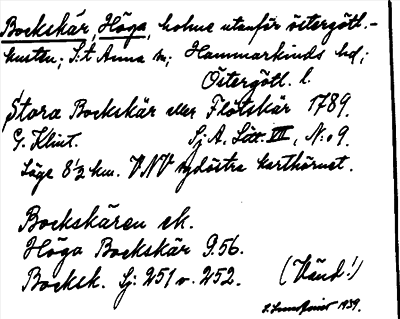 Bockskär, Höga, holme utanför östergötl.-
kusten; S:t Anna sn; Hammarkinds hd;
Östergötl. l.
Stora Bockskär eller Flötskär 1789.
G. Klint. Sj. A. Litt. III, N:o 9.
Läge 8 1/2 km. VNV sydöstra karthörnet.
Bockskären ek.
Höga Bockskär 9.56.
Bocksk. Sj: 251 v. 252.
(Vänd!)
1939.